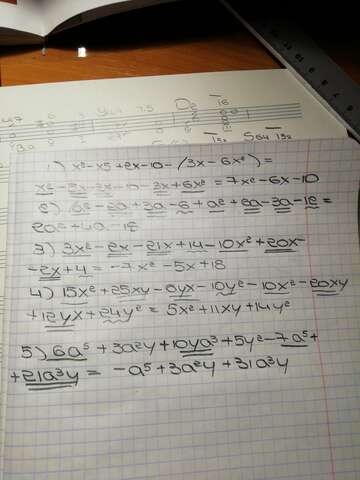 1) x² - x5 + 2x - 10 - (3x - 6x²) =
x² - 5x + 2x - 10 - 3x + 6x² = 7x² - 6x - 10
2) a² - 2a + 3a - 6 + a² + 6a - 3a - 12 =
2a² + 4a - 18
3) 3x² - 2x - 21x + 14 - 10x² + 20x -
- 2x + 4 = -7x² - 5x + 18
4) 15x² + 25xy - 6yx - 10y² - 10x² - 20xy
+ 12yx + 24y² = 5x² + 11xy + 14y²
5) 6a⁵ + 3a²y + 10ya³ + 5y² - 7a⁵ +
+ 21a³y = -a⁵ + 3a²y + 31a³y